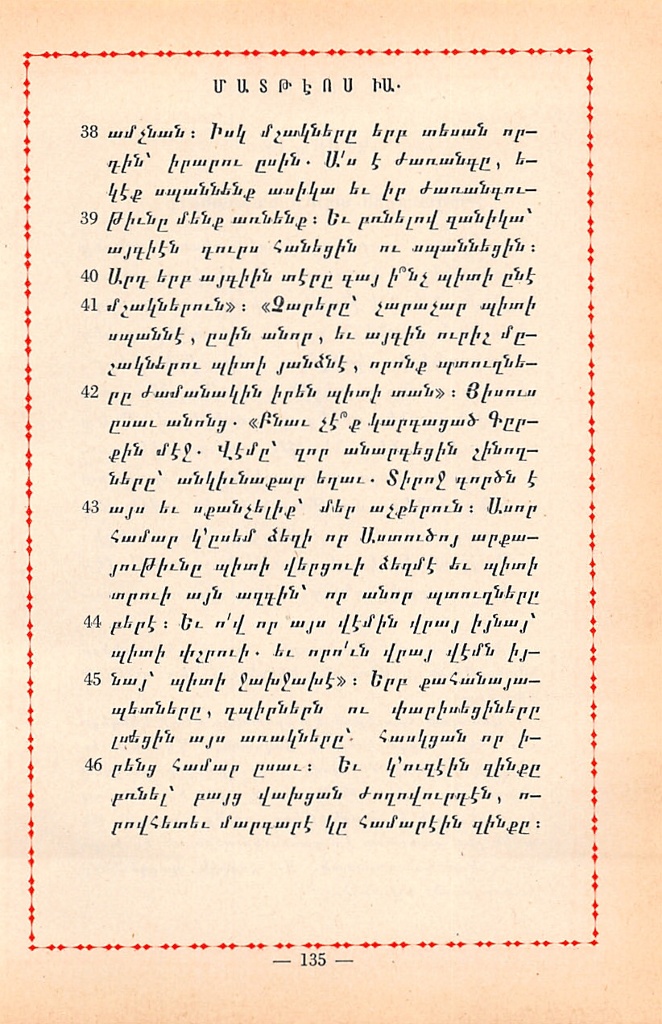 ՄԱՏԹԷՈՍ ԻԱ.
38 ամչնան։ Իսկ մշակները երբ տեսան որ–
դին՝ իրարու ըսին. Ա՛ս է ժառանգը, ե–
կէք սպաննենք ասիկա եւ իր ժառանգու–
39 թիւնը մենք առնենք։ Եւ բռնելով զանիկա՝
այգիէն դուրս հանեցին ու սպաննեցին։
40 Արդ երբ այգիին տէրը գայ ի՞նչ պիտի ընէ
41 մշակներուն»։ «Չարերը՝ չարաչար պիտի
սպաննէ, ըսին անոր, եւ այգին ուրիշ մը–
շակներու պիտի յանձնէ, որոնք պտուղնե–
42 րը ժամանակին իրեն պիտի տան»։ Յիսուս
ըսաւ անոնց. «Բնաւ չէ՞ք կարդացած Գըր–
քին մէջ. Վէմը՝ զոր անարգեցին շինող–
ները՝ անկիւնաքար եղաւ. Տիրոջ գործն է
43 այս եւ սքանչելիք՝ մեր աչքերուն։ Ասոր
համար կ՚ըսեմ ձեզի որ Աստուծոյ արքա–
յութիւնը պիտի վերցուի ձեզմէ եւ պիտի
տրուի այն ազգին՝ որ անոր պտուղները
44 բերէ։ Եւ ո՛վ որ այս վէմին վրայ իյնայ՝
պիտի փշրուի. եւ որո՛ւն վրայ վէմն իյ–
45 նայ՝ պիտի ջախջախէ»։ Երբ քահանայա–
պետները, դպիրներն ու փարիսեցիները
լսեցին այս առակները՝ հասկցան որ ի–
46 րենց համար ըսաւ։ Եւ կ՚ուզէին զինքը
բռնել՝ բայց վախցան ժողովուրդէն, ո–
րովհետեւ մարգարէ կը համարէին զինքը։
— 135 —